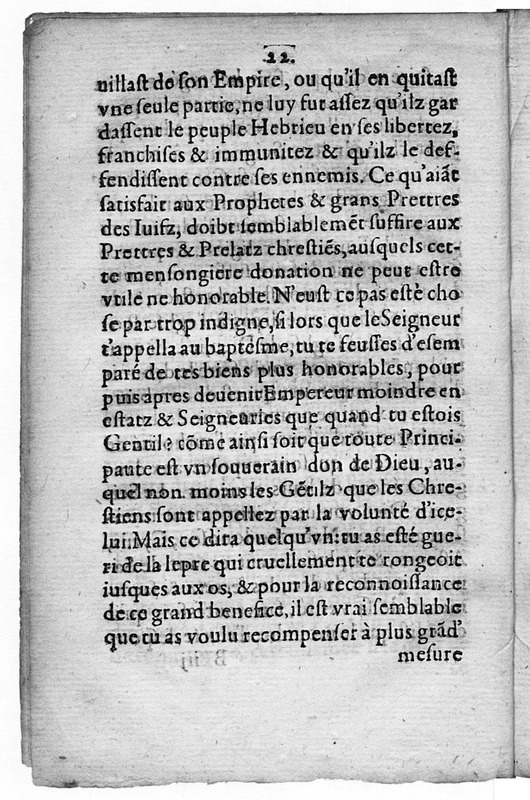 22.
uillast de son Empire, ou qu'il en quitast
vne seule partie, ne luy fut assez qu'ilz gar
dassent le peuple Hebrieu en ses libertez,
franchises & immunitez & qu'ilz le def-
fendissent contre ses ennemis. Ce qu'aiãt
satisfait aux Prophetes & grans Prettres
des Iuifz, doibt semblablemẽt suffire aux
Prettres & Prelatz chrestiẽs, ausquels cet-
te mensongiere donation ne peut estre
vtile ne honorable. N'eust ce pas estè cho
se par trop indigne, si lors que le Seigneur
t'appella au baptesme, tu te feusses d'esem
paré de tes biens plus honorables, pour
puis apres deuenir Empereur moindre en
estatz & Seigneuries que quand tu estois
Gentil? cõme ainsi soit que toute Princi-
paute est vn souuerain don de Dieu, au-
quel non moins les Gẽtilz que les Chre-
stiens sont appellez par la volunté d'ice-
lui: Mais ce dira quelqu'vn: tu as esté gue-
ri de la lepre qui cruellement te rongeoit
iusques aux os, & pour la reconnoissance
de ce grand benefice, il est vrai semblable
que tu as voulu recompenser à plus grãd'
mesure